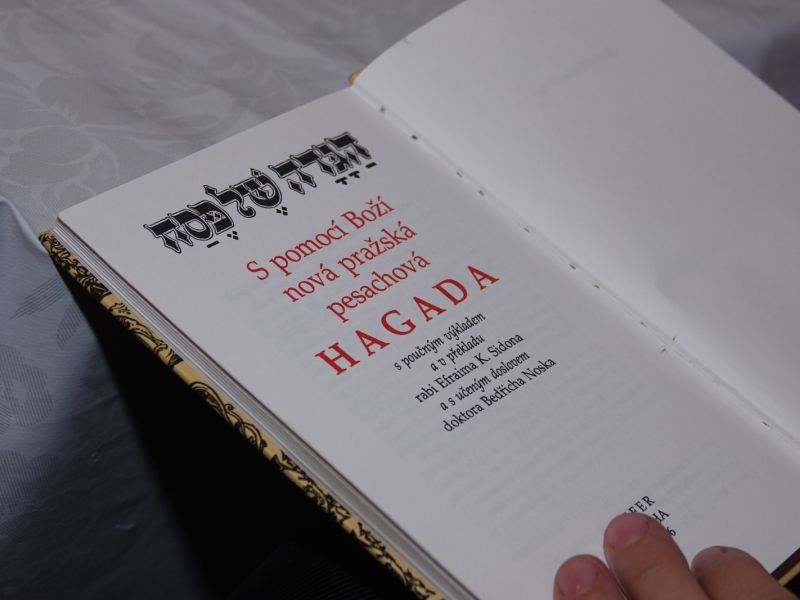 הַגָּדָה שֶׁל פֶּסַח
S pomocí Boží
nová pražská
pesachová
HAGADA
s poučným výkladem
a v překladu
rabi Efraima K. Sidona
a s učeným doslovem
doktora Bedřicha Noska